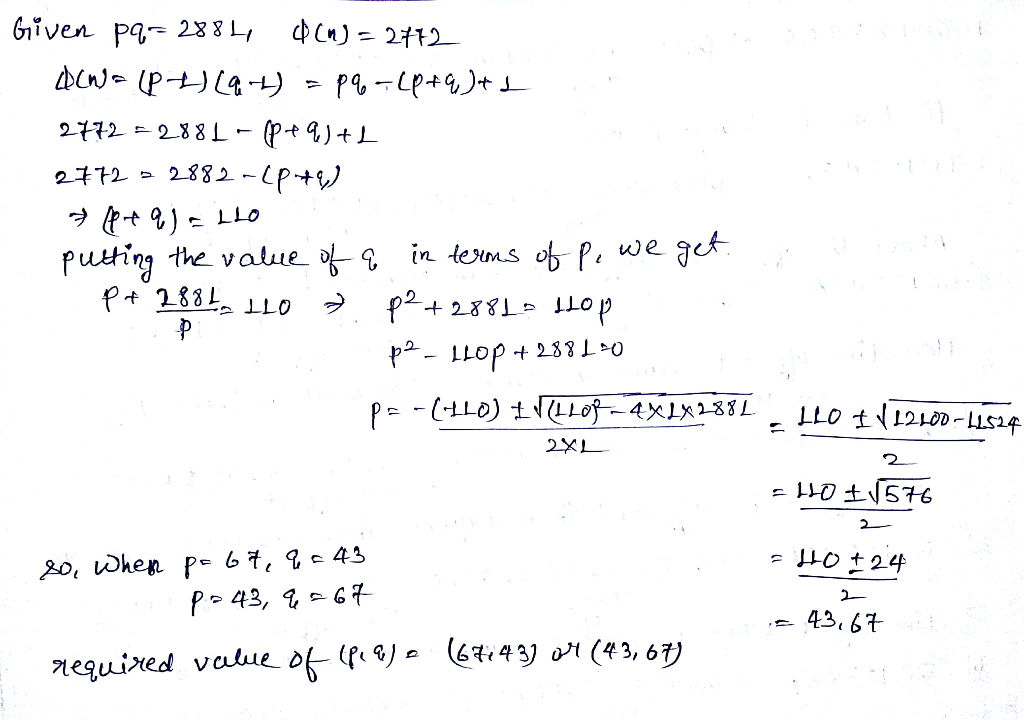 Given pq = 2881, φ(n) = 2772
φ(n) = (p-1)(q-1) = pq - (p+q) + 1
2772 = 2881 - (p+q) + 1
2772 = 2882 - (p+q)
⇒ (p+q) = 110
putting the value of q in terms of p, we get
p + 2881/p = 110 ⇒ p² + 2881 = 110p
p² - 110p + 2881 = 0
p = -(-110) ± √((110)² - 4×1×2881) / 2×1 = 110 ± √(12100-11524) / 2
= 110 ± √576 / 2
= 110 ± 24 / 2
= 43, 67
so, when p = 67, q = 43
p = 43, q = 67
required value of (p,q) = (67,43) or (43,67)